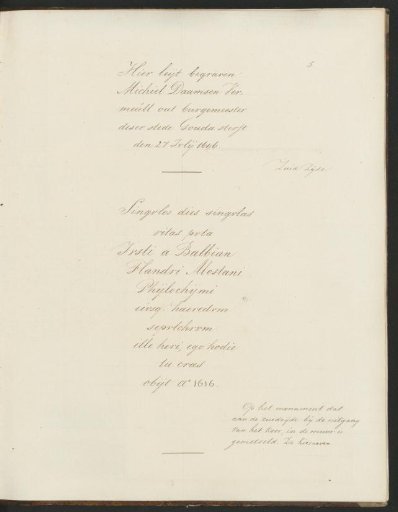 5
Hier leyt begraven
Michiel Daamsen Ver
meúll out burgemeester
deser stede Gouda sterft
den 27 Ivlij 1646.
Zuid Zijde.
Singvlos dies singvlas
vitas pvta
Ivsti a Balbian
Flandri Alostani
Phÿlochymi
eivsq. haeredvm
sepvlchrvm
ille heri ego hodie
tu cras
obijt Aº 1616.
Op het monument dat
aan de zuidzijde bij de uitgang
van het koor, in de muur is
gemetseld. Zie hierover